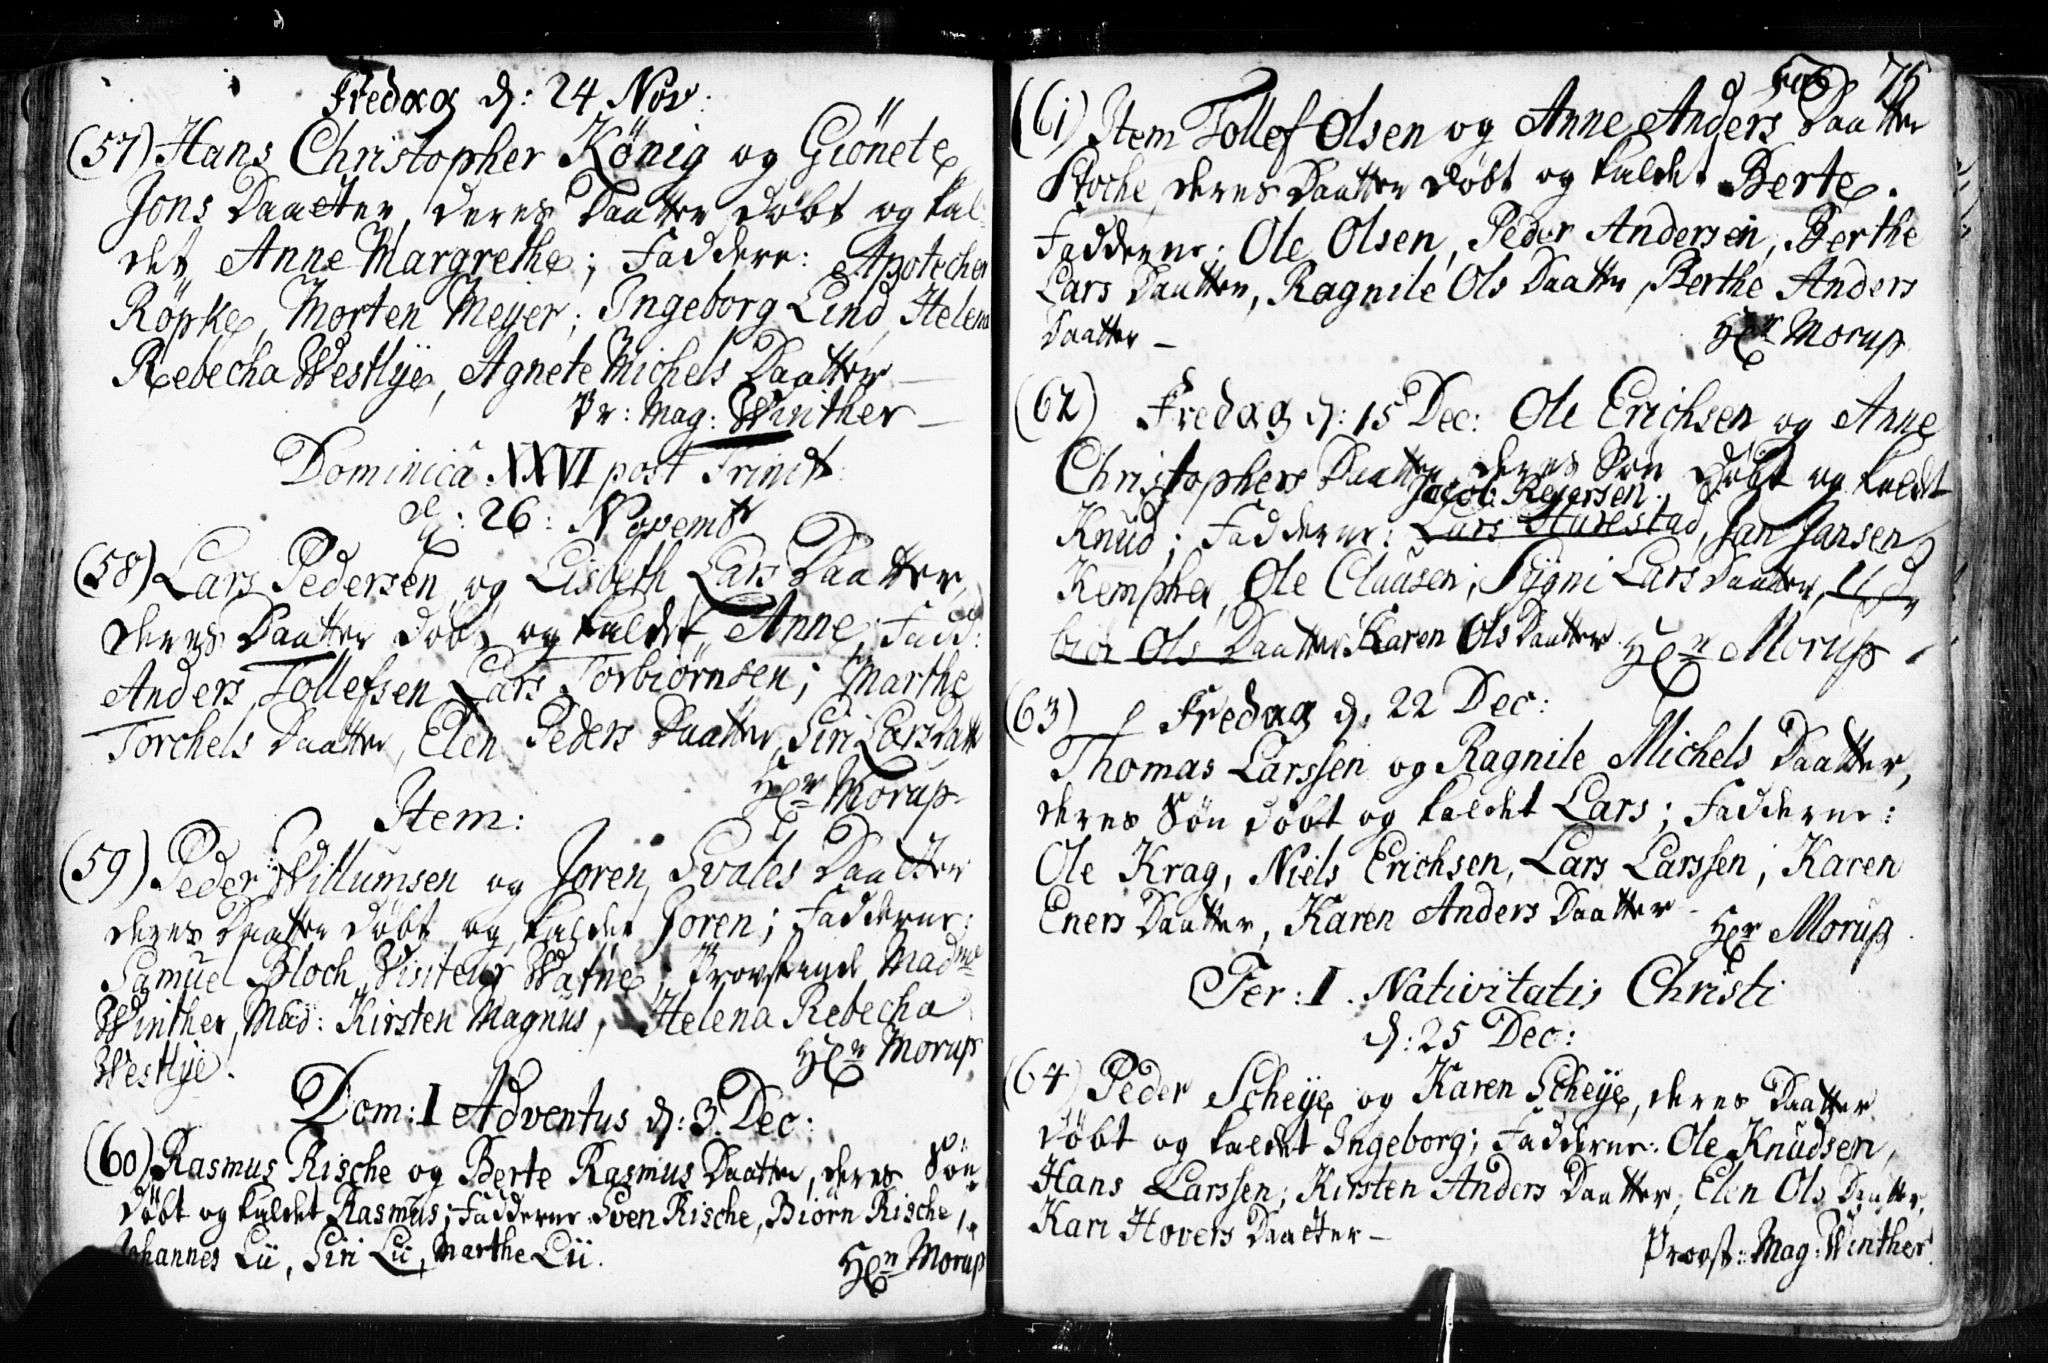 Fredag d: 24 Nov:
(57) Hans Christopher König og Giönete
Jons Daatter, deres Daatter döbt og kal-
det Anne Margrethe; Faddere: Apotecher
Röpke, Morten Meyer; Ingeborg Lind, Helena
Rebecha Westlye, Agnete Michels Daatter —
Pr: Mag: Winther —
Dominica XXVI post Trinit:
d: 26: Novembr
(58) Lars Pedersen og Lisbeth Lars Daatter,
deres Daatter döbt og kaldet Anne; Fadd:
Anders Tollefsen, Lars Torbiörnsen; Marthe
Torchels Daatter, Elen Peders Daatter, Siri Lars Datt
Hr Morup
Item:
(59) Peder Willumsen og Joren Svales Daatter
deres Daatter döbt og kaldet Joren; Fadderne:
Samuel Bloch, Visiteur Watne; Provstinde Madme
Winther, Mad: Kirsten Magnus, Helena Rebecha
Westlye.
Hr Morup
Dom: I Adventus d: 3 Dec:
(60) Rasmus Rische og Berte Rasmus Daatter, deres Sön
döbt og kaldet Rasmus; Fadderne: Sven Rische, Biörn Rische,
Johannes Lii, Siri Lii, Marthe Lii.
Hr Morup
75
(61) Item Tollef Olsen og Anne Anders Daatter
Stoche, deres Daatter döbt og kaldet Berte.
Fadderne: Ole Olsen, Peder Andersen, Berthe
Lars Daatter, Ragnile Ols Daatter, Berthe Anders
Daatter —
Hr Morup
(62) Fredag d: 15 Dec: Ole Erichsen og Anne
Christophers Daatter deres Sön döbt og kaldet
Jacob Reyersen
Knud; Fadderne: Lars Harestad, Jan Jansen
Kempher, Ole Clausen; Sygni Lars Daatter,
Ols Daatter Karen Ols Daatter. Hr Morup
(63) Fredag d: 22 Dec:
Thomas Larssen og Ragnile Michels Daatter,
deres Sön döbt og kaldet Lars; Fadderne:
Ole Krag, Niels Erichsen, Lars Larssen; Karen
Eners Daatter, Karen Anders Daatter —
Hr Morup
Fer: I. Nativitatis Christi
d: 25 Dec:
(64) Peder Scheye og Karen Scheye, deres Daatter
döbt og kaldet Ingeborg; Fadderne: Ole Knudsen,
Hans Larssen; Kirsten Anders Daatter, Elen Ols Daatter,
Kari Hovers Daatter —
Provst: Mag: Winther